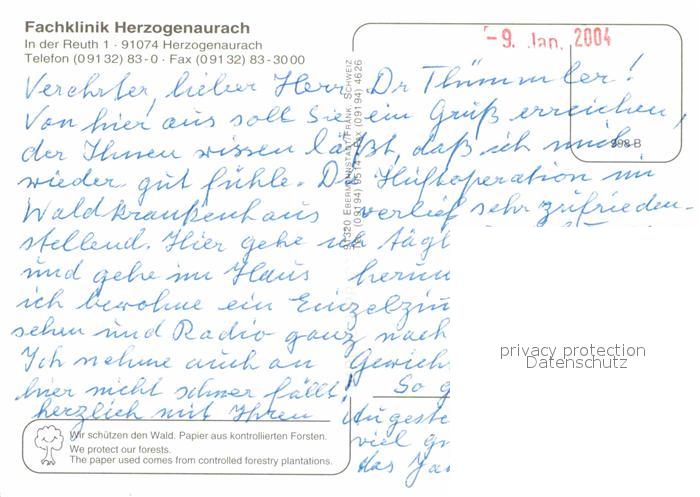 Fachklinik Herzogenaurach
In der Reuth 1 · 91074 Herzogenaurach
Telefon (09132) 83-0 · Fax (09132) 83-3000
-9. Jan. 2004
Verehrter, lieber Herr Dr Thümmler!
Von hier aus soll Sie ein Gruß erreichen,
der Ihnen wissen läßt, daß ich mich
wieder gut fühle. Die Hüftoperation im
Waldkrankenhaus verlief sehr zufrieden-
stellend. Hier gehe ich tägl
und gehe im Haus herum
ich bewohne ein Einzelzim
sehen und Radio ganz nach
Ich nehme auch an Gewich
hier nicht schwer fällt! So g
herzlich mit Ihren Angeste
viel
das Ja
91320 EBERMANNSTADT/FRÄNK. SCHWEIZ
Fax (09194) 4626
398 B
privacy protection
Datenschutz
Wir schützen den Wald. Papier aus kontrollierten Forsten.
We protect our forests.
The paper used comes from controlled forestry plantations.